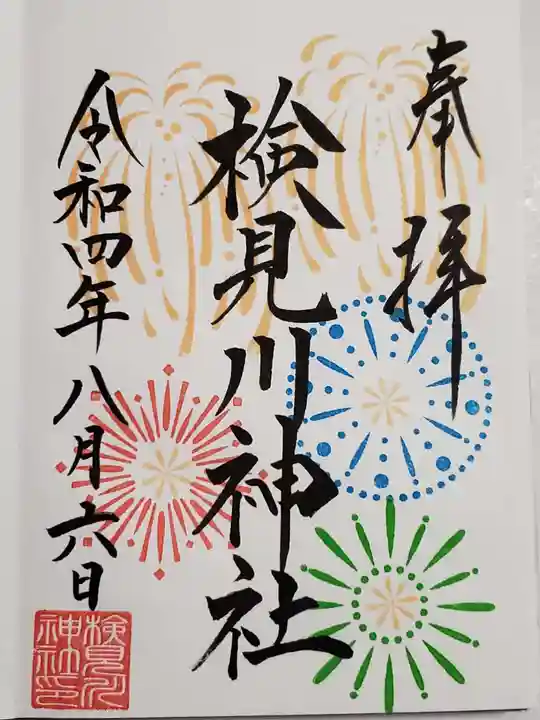 奉拝
検見川神社
令和四年八月六日
検見川
神社印